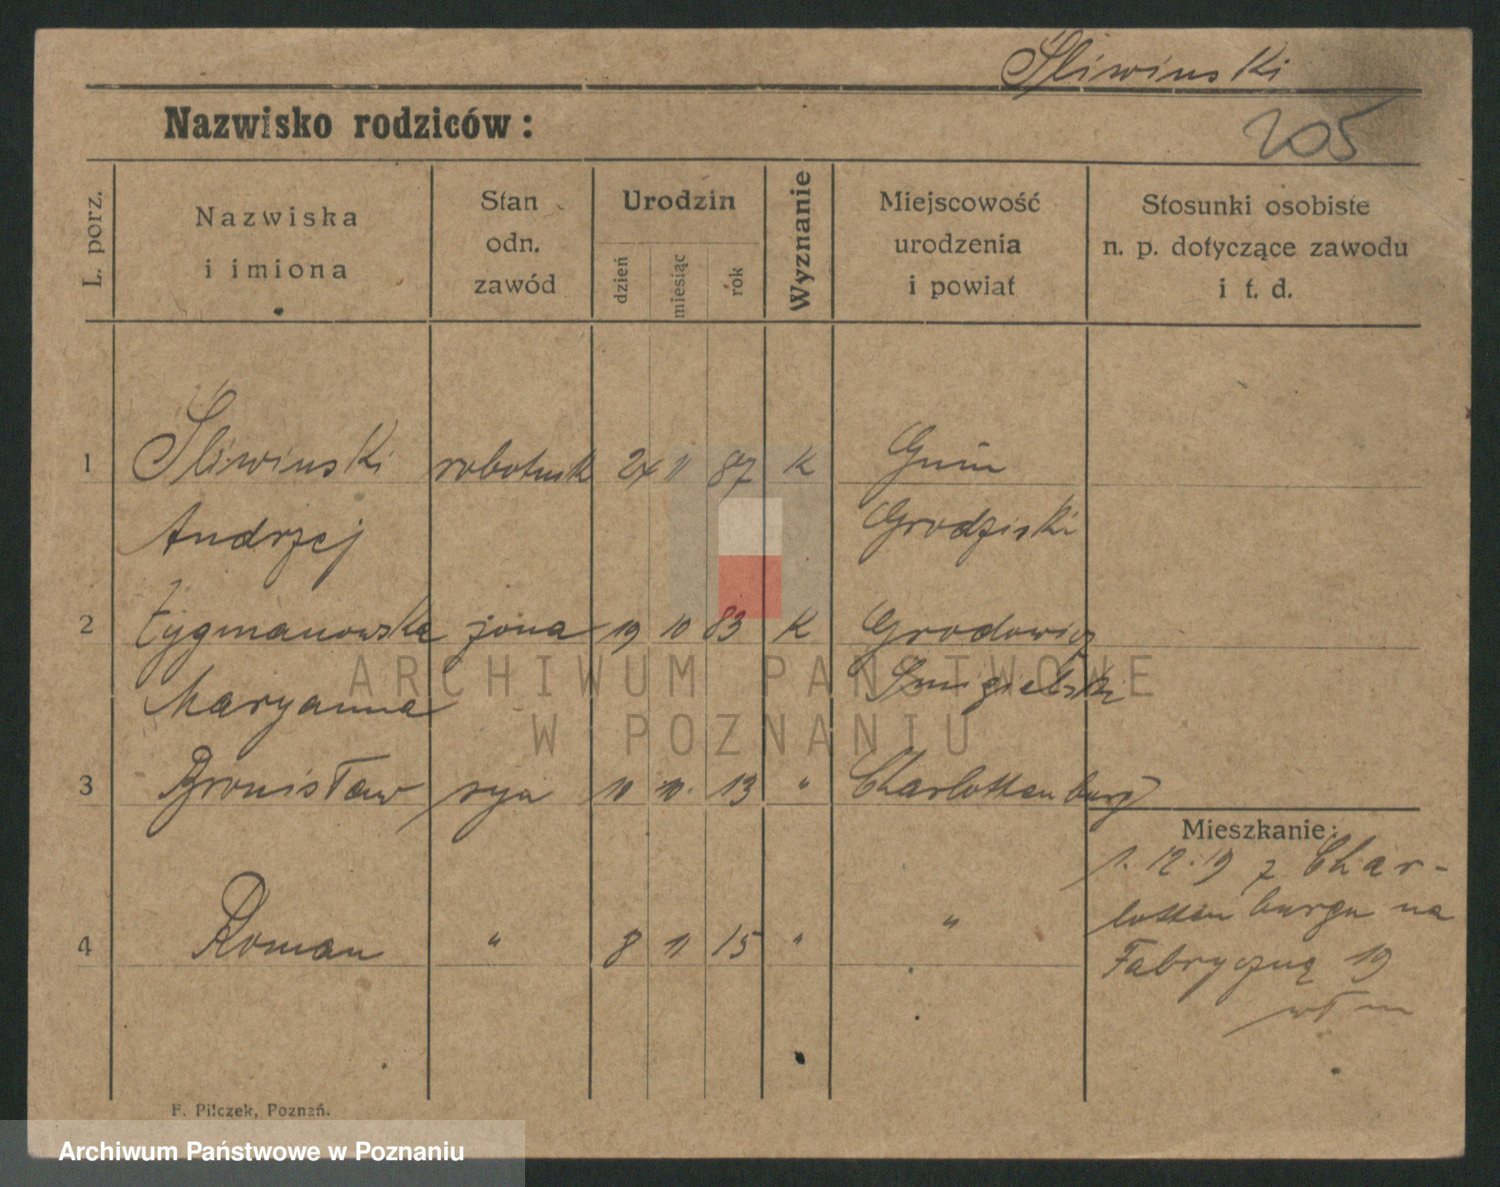 Śliwinski
Nazwisko rodziców:
205
L. porz.
Nazwiska
i imiona
Stan
odn.
zawód
Urodzin
dzień
miesiąc
rok
Wyznanie
Miejscowość
urodzenia
i powiat
Stosunki osobiste
n. p. dotyczące zawodu
i t. d.
1 Śliwinski robotnik 24 11 87 K Gnin
Andrzej Grodziski
2 Zygmanowska żona 19 10 83 K Grodowicz
Maryanna Smigielski
3 Bronisław syn 10 10. 13 " Charlottenburg
Mieszkanie:
1. 12. 19 z Char-
lottenburgu na
4 Roman " 8 11 15 " "
Fabryczną 19
F. Pilczek, Poznań.
ARCHIWUM PAŃSTWOWE
W POZNANIU
Archiwum Państwowe w Poznaniu